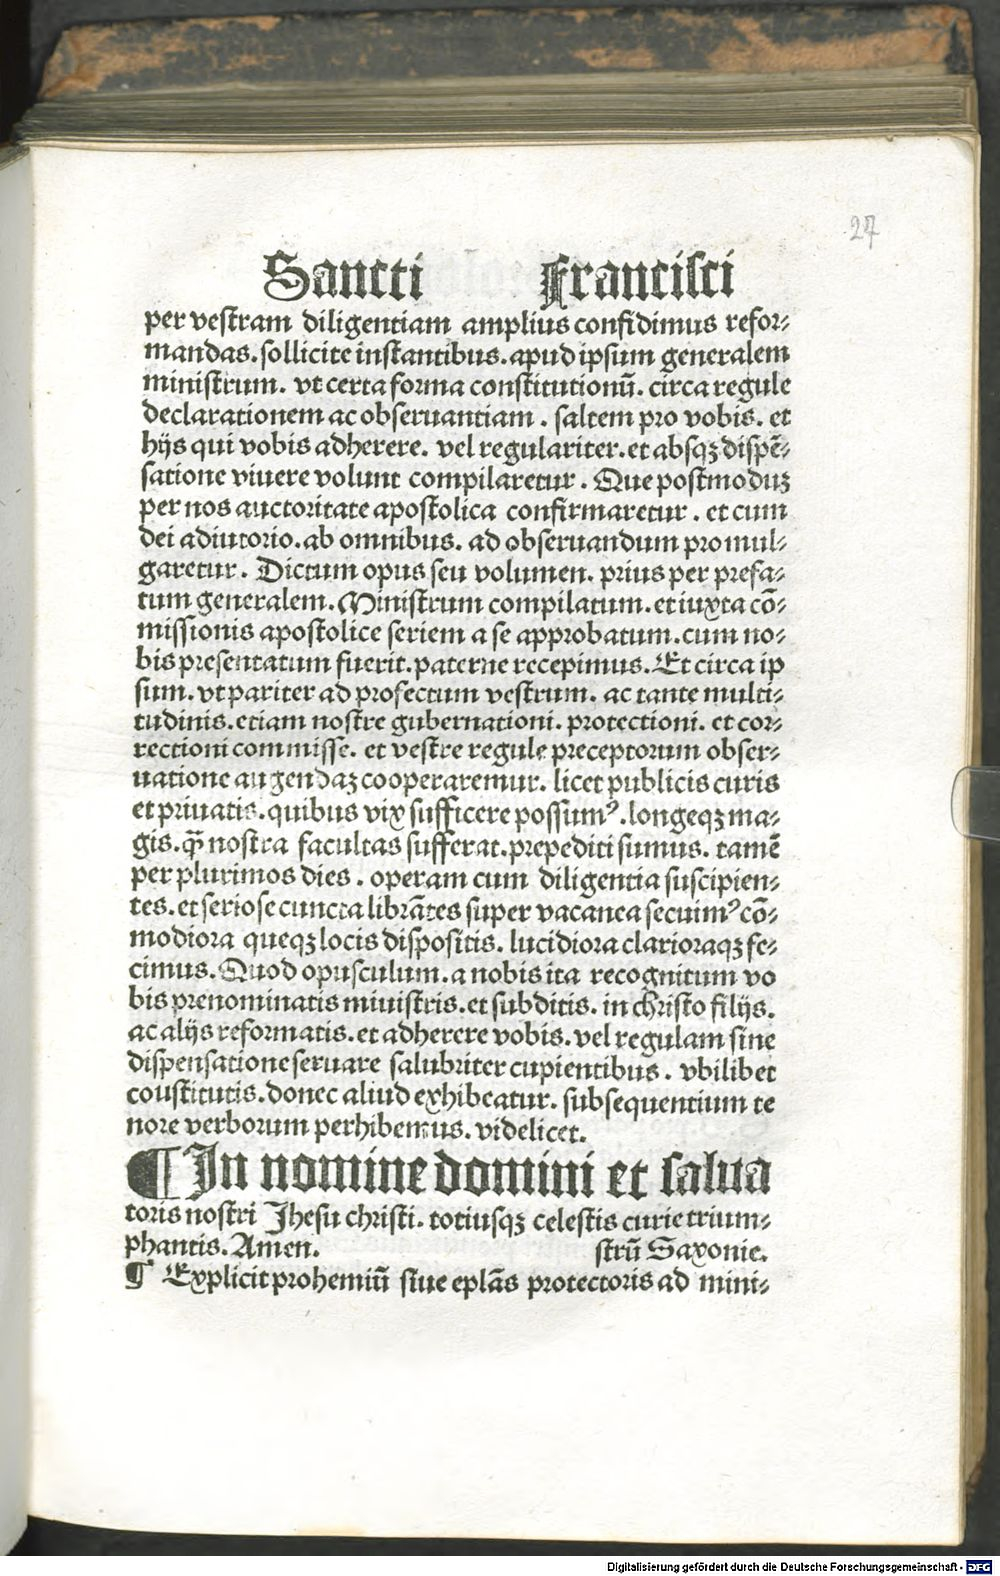 27
Sancti Francisci
per vestram diligentiam amplius confidimus refor⸗
mandas. sollicite instantibus. apud ipsum generalem
ministrum. vt certa forma constitutionū. circa regule
declarationem ac obseruantiam. saltem pro vobis. et
hijs qui vobis adherere. vel regulariter. et absqꝫ dispē⸗
satione viuere volunt compilaretur. Que postmoduꝫ
per nos auctoritate apostolica confirmaretur. et cum
dei adiutorio. ab omnibus. ad obseruandum promul⸗
garetur. Dictum opus seu volumen. prius per prefa⸗
tum generalem. Ministrum compilatum. et iuxta cō⸗
missionis apostolice seriem a se approbatum. cum no⸗
bis presentatum fuerit. paterne recepimus. Et circa ip
sum. vt pariter ad profectum vestrum. ac tante multi⸗
tudinis. etiam nostre gubernationi. protectioni. et cor⸗
rectioni commisse. et vestre regule preceptorum obser⸗
uatione augendaꝫ cooperaremur. licet publicis curis
et priuatis. quibus vix sufficere possumꝰ. longeqꝫ ma⸗
gis. q̄ꝫ nostra facultas sufferat. prepediti sumus. tamē
per plurimos dies. operam cum diligentia suscipien⸗
tes. et seriose cuncta librātes super vacanea secuimꝰ cō⸗
modiora queqꝫ locis dispositis. lucidiora clarioraqꝫ fe⸗
cimus. Quod opusculum. a nobis ita recognitum vo
bis prenominatis miuistris. et subditis. in christo filijs.
ac alijs reformatis. et adherere vobis. vel regulam sine
dispensatione seruare salubriter cupientibus. vbilibet
coustitutis. donec aliud exhibeatur. subsequentium te
nore verborum perhibemus. videlicet.
¶ In nomine domini et salua
toris nostri Jhesu christi. totiusqꝫ celestis curie trium⸗
phantis. Amen. strū Saxonie.
¶ Explicit prohemiū siue eplās protectoris ad mini⸗
Digitalisierung gefördert durch die Deutsche Forschungsgemeinschaft - DFG